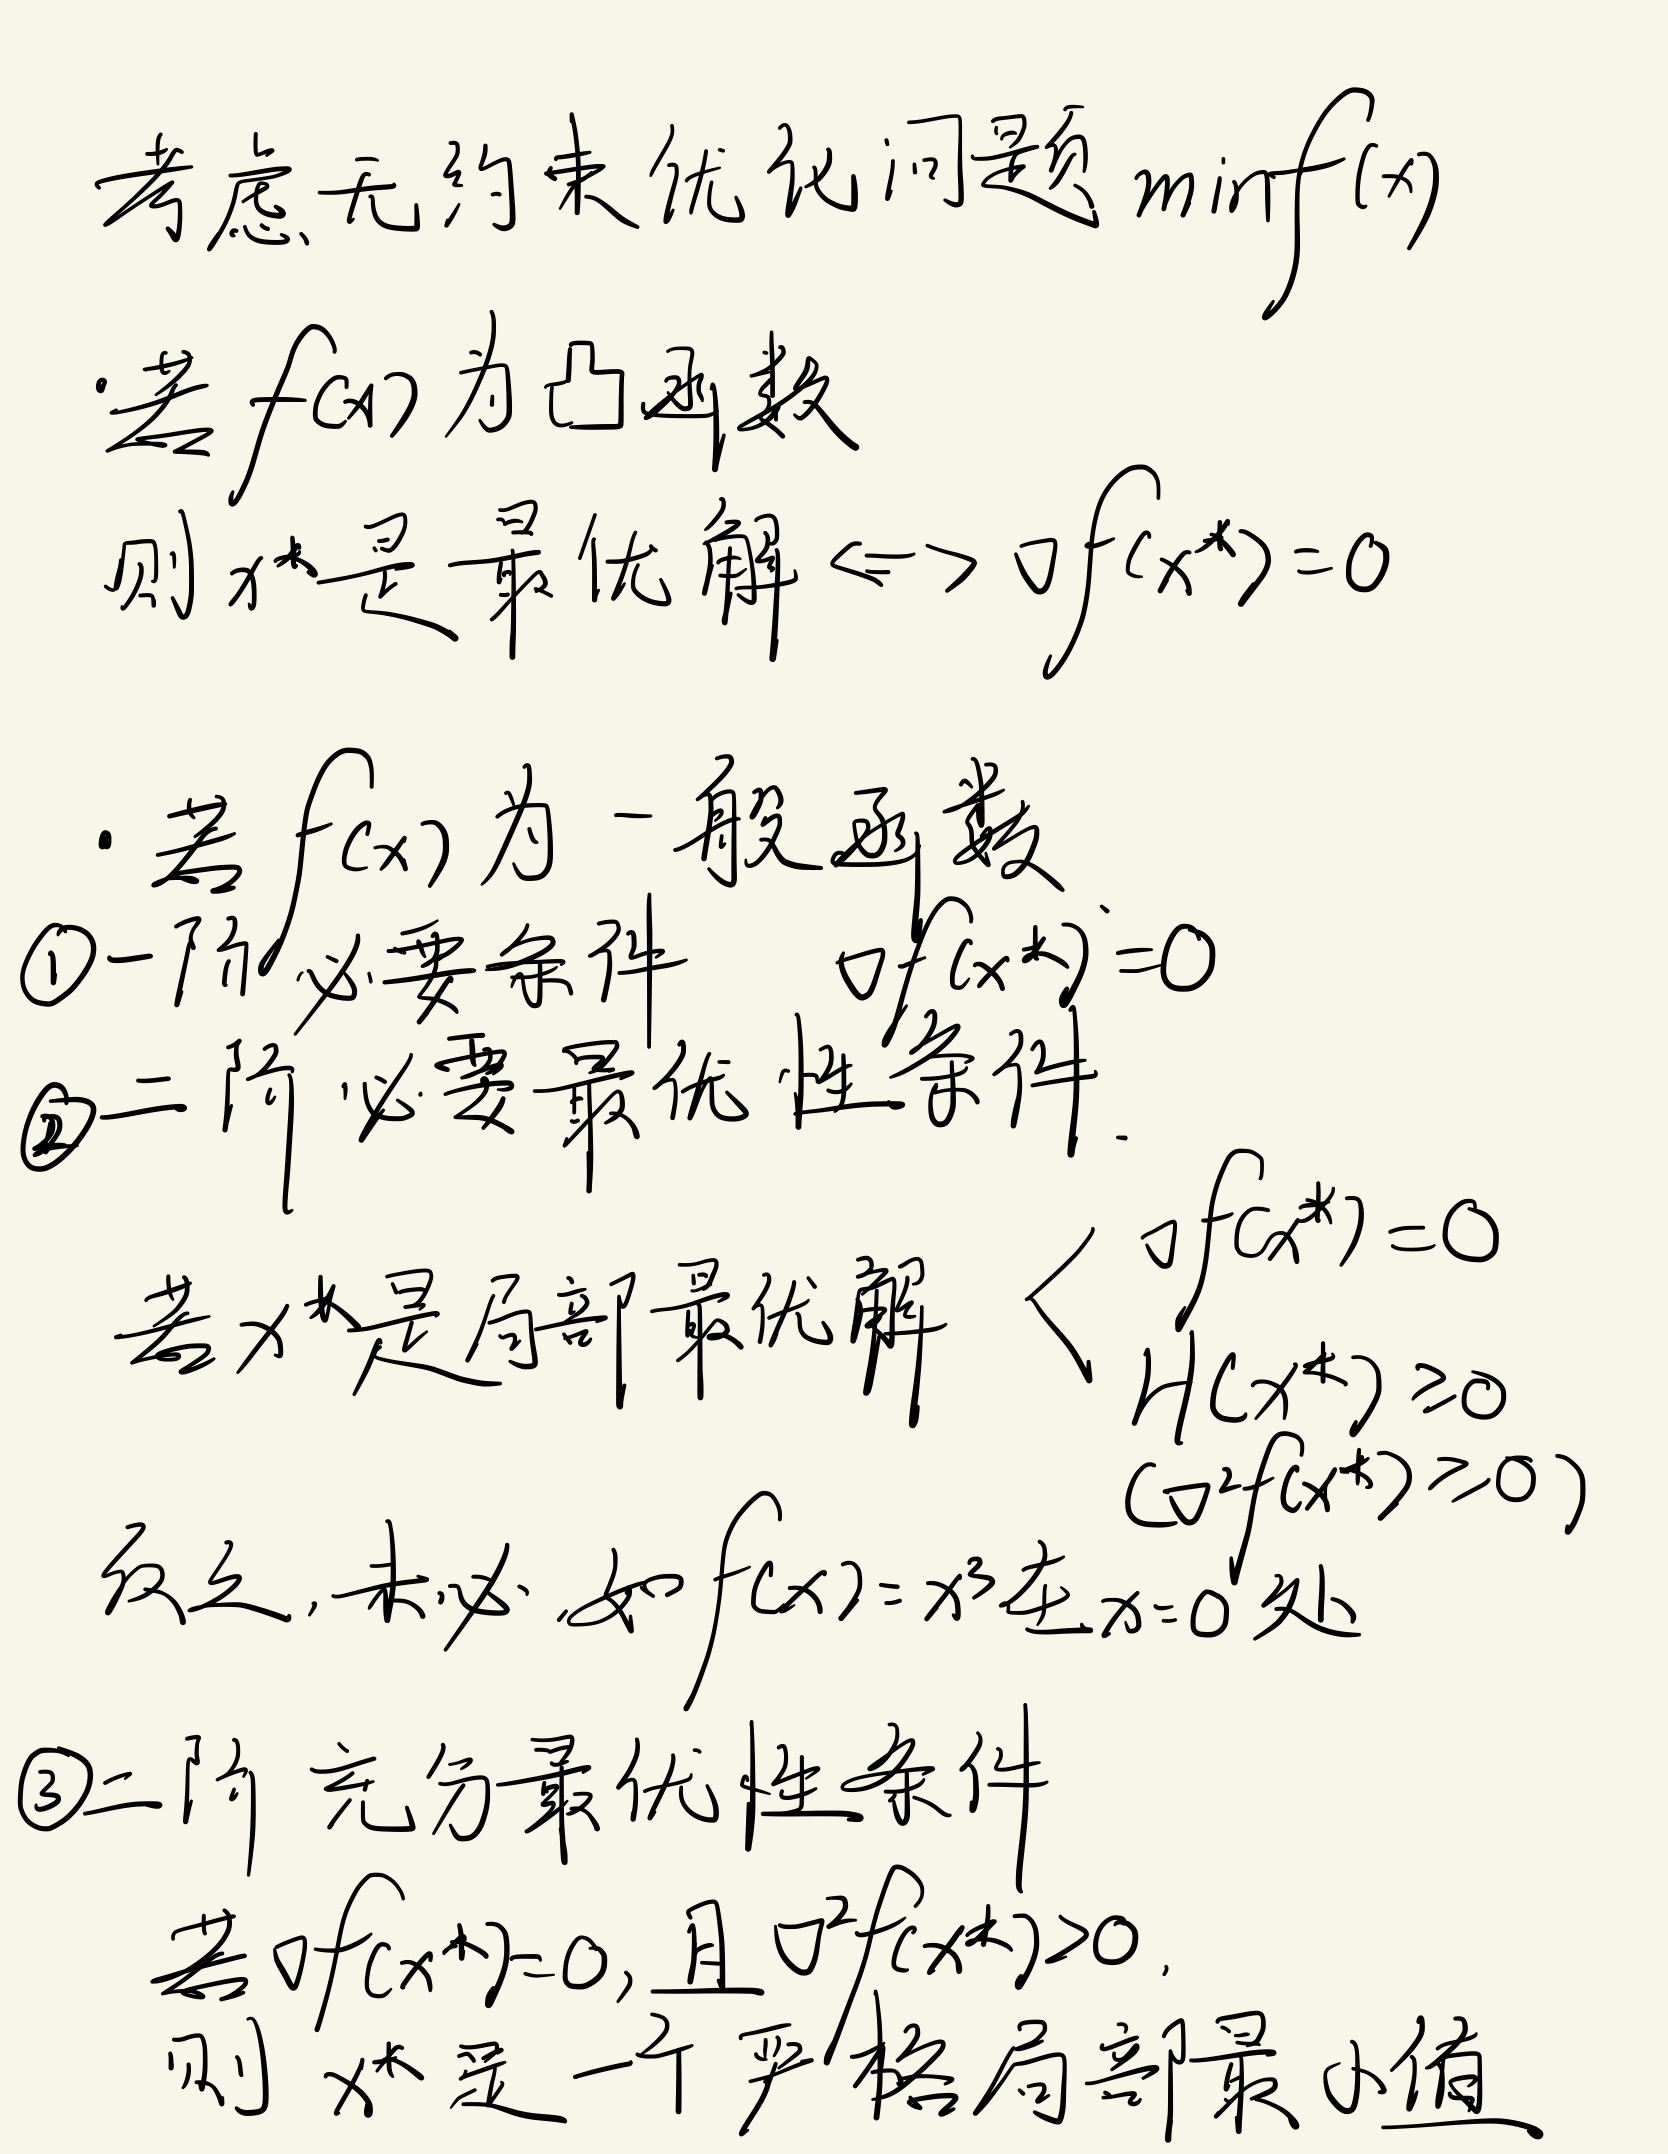 考虑无约束优化问题 min f(x)
·若 f(x) 为凸函数
则 x* 是最优解 <=> ∇f(x*)=0
·若 f(x) 为一般函数
①一阶必要条件 ∇f(x*)=0
②二阶必要最优性条件.
∇f(x*)=0
若 x* 是局部最优解 <
H(x*)≥0
(∇²f(x*)≥0)
反之,未必.如 f(x)=x³ 在 x=0 处
③二阶充分最优性条件
若 ∇f(x*)=0,且 ∇²f(x*)>0,
则 x* 是一个严格局部最小值